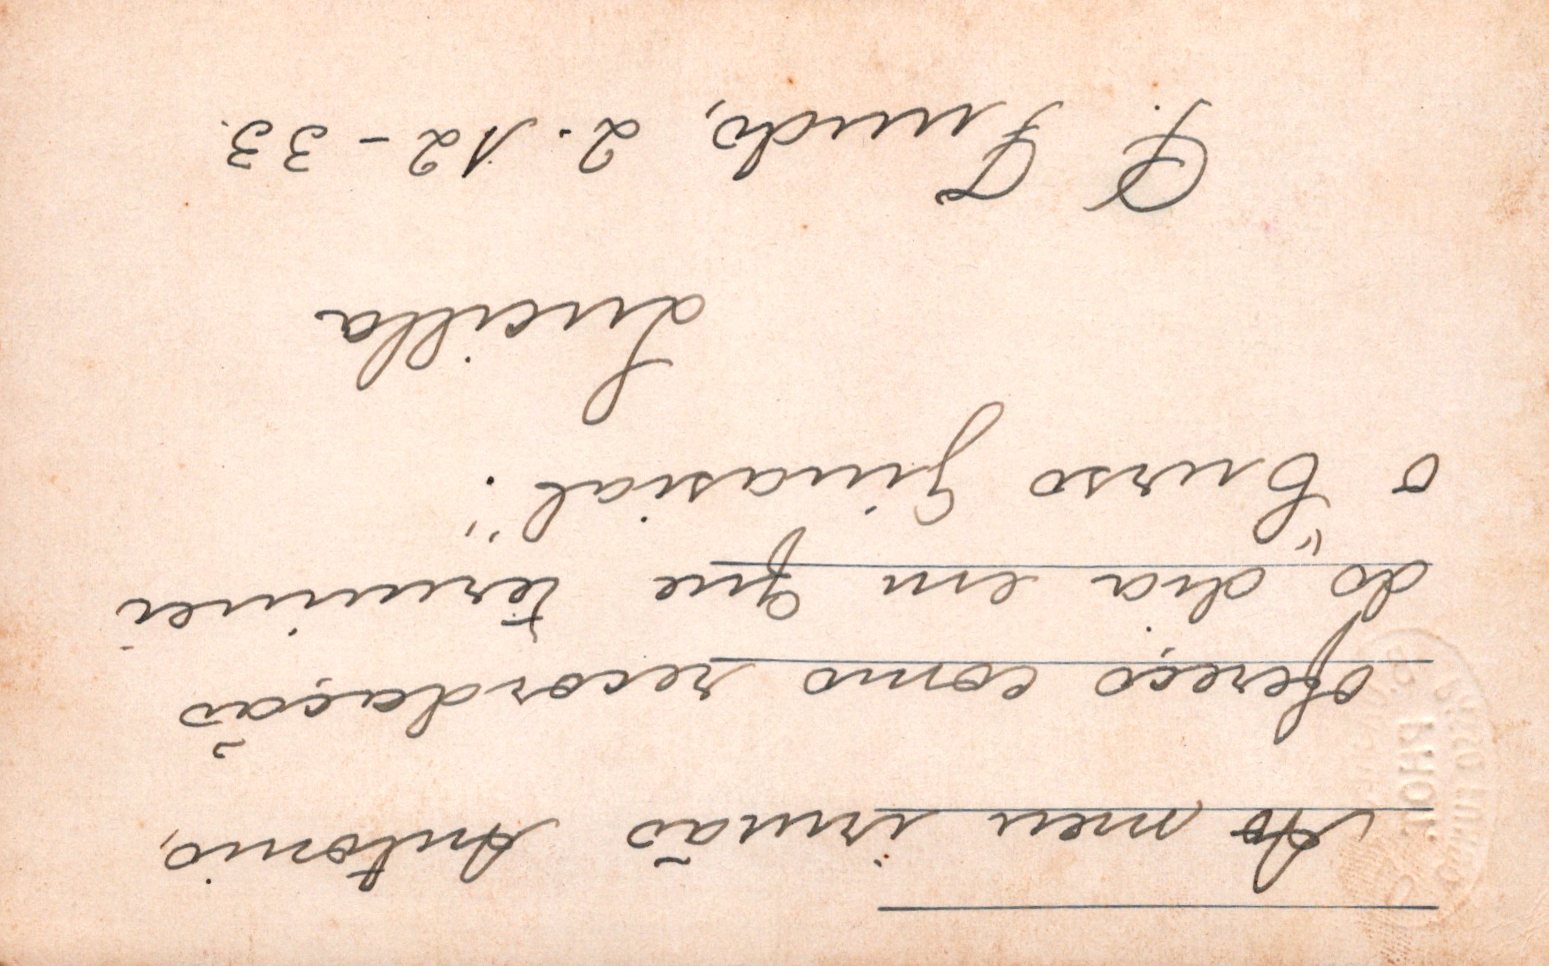 Ao meu irmão Antonio,
ofereço como recordação
do dia em que terminei
o "Curso Ginasial".
Lucilla
P. Fundo, 2-12-33.
PHOT.